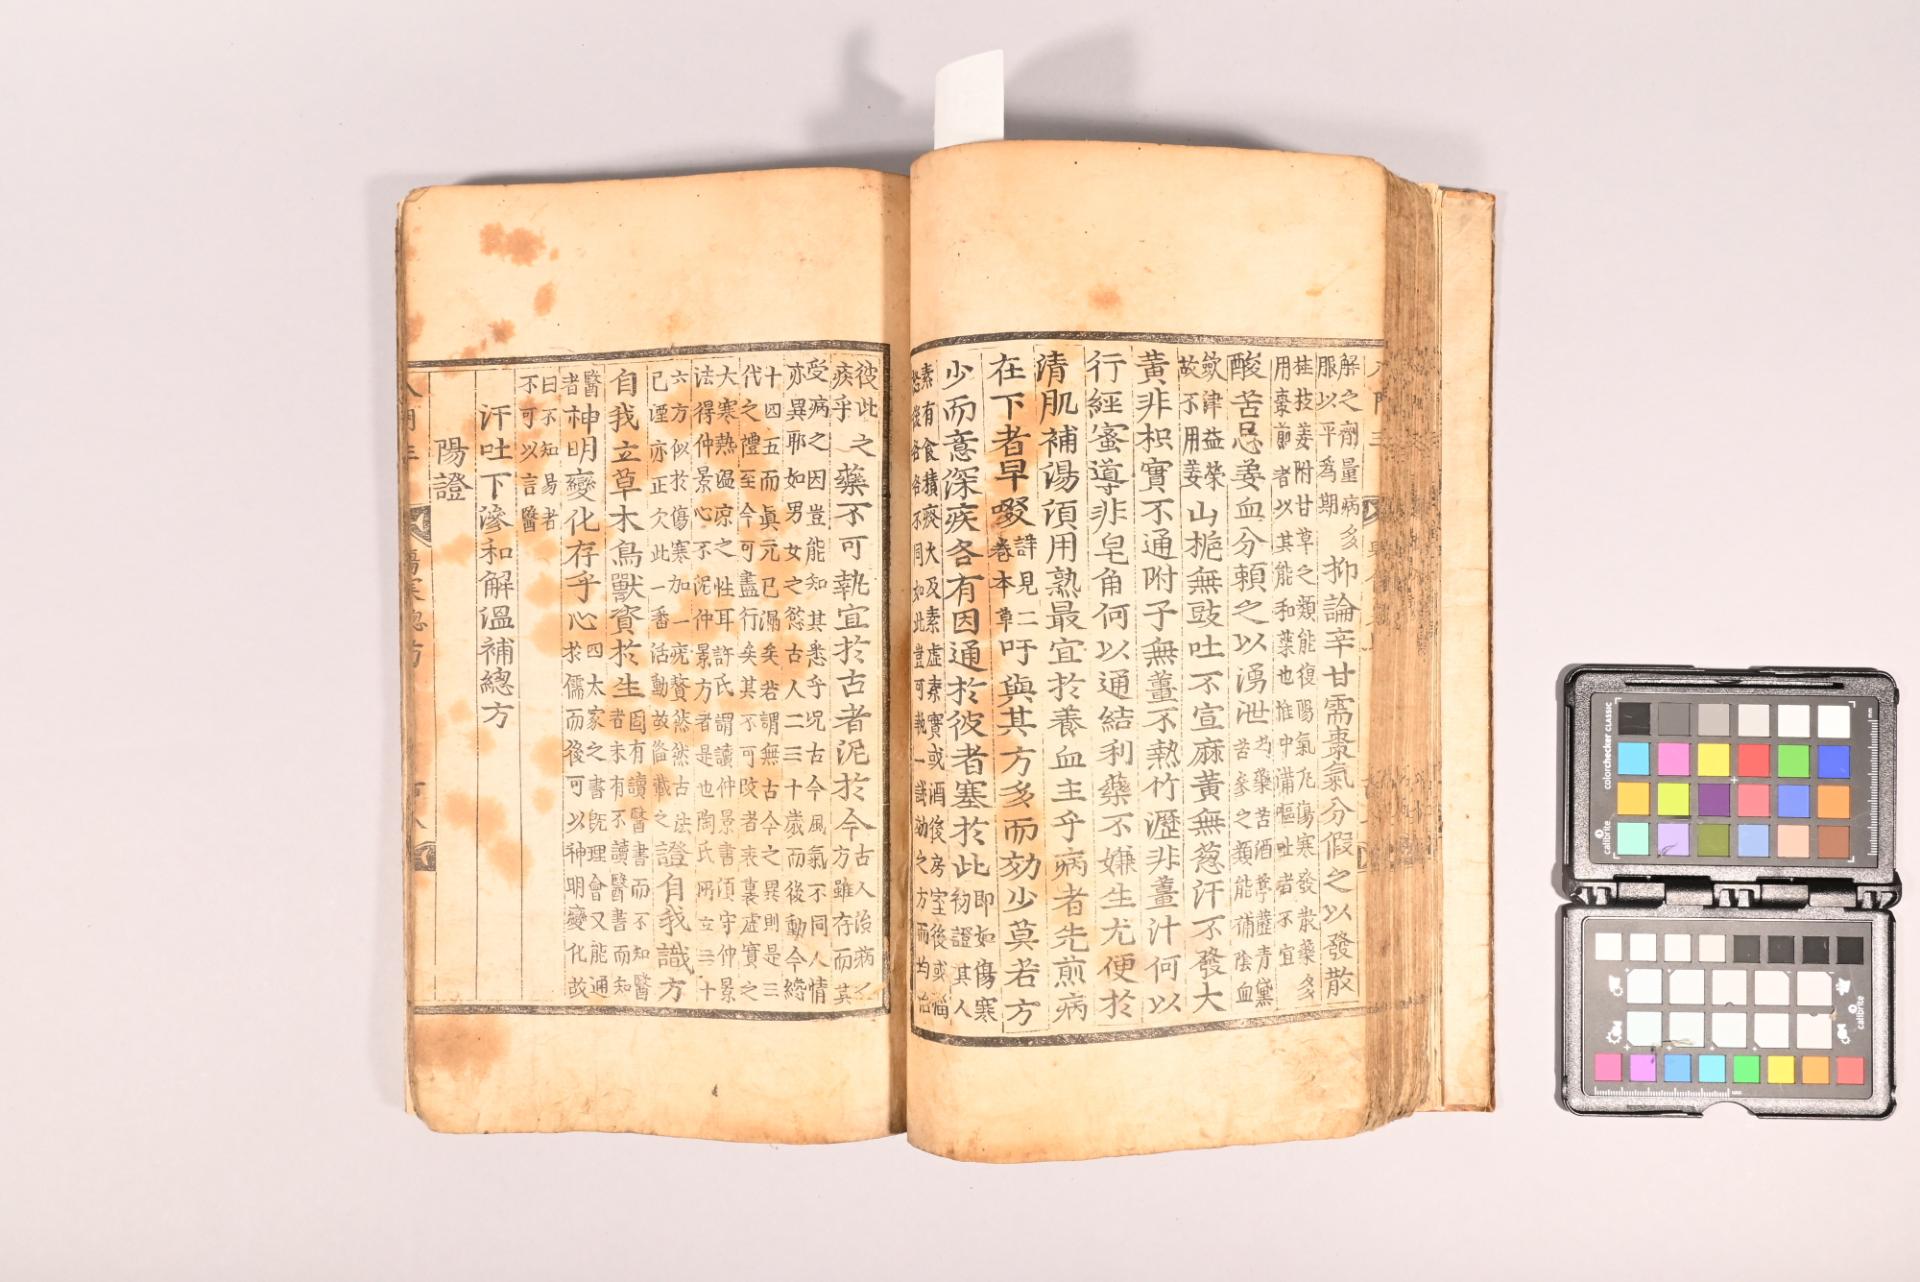 解之劑量病多
服以平為期
抑論辛甘需棗氣分假之以發散
桂技姜附甘草之類能復陽氣凡傷寒發散藥多
用棗煎者以其能和藥也惟中滿嘔吐者不宜
酸苦忌姜血分賴之以湧泄
為藥苦酒葶藶青黛
苦參之類能補陰血
歛津益榮
故不用姜
山梔無豉吐不宣麻黃無葱汗不發大
黃非枳實不通附子無薑不熱竹瀝非薑汁何以
行經蜜導非皂角何以通結利藥不嫌生尤便於
清肌補湯須用熟最宜於養血主乎病者先煎病
在下者早啜
詳見二
卷本草
吁與其方多而効少莫若方
少而意深疾各有因通於彼者塞於此
即如傷寒
初證其人
素有食積痰火及素虛素實或酒後房室後或惱
怒後各各不同如此豈可執一識劫之方而均治
彼此之
疾乎
藥不可執宜於古者泥於今
古人治病之
方雖存而其
受病之因豈能知其悉乎况古今風氣不同人情
亦異耶如男女之慾古人二三十歲而後動今纔
十四五而眞元已漏矣若謂無古今之異則是三
代之禮至今可盡行矣其不可攺者表裏虛實之
大寒熱溫凉之性耳許氏謂讀仲景書須守仲景
法得仲景心不泥仲景方者是也陶氏所立三十
六方似於傷寒加一疣贅然然古法
已湮亦正欠此一番活動故俻載之
證自我識方
自我立草木鳥獸資於生
者未有不讀醫書而知
醫者
固有讀醫書而不知醫
神明變化存乎心
四太家之書旣理會又能通
於儒而後可以神明變化故
曰不知易者
不可以言醫
汗吐下滲和解溫補總方
陽證